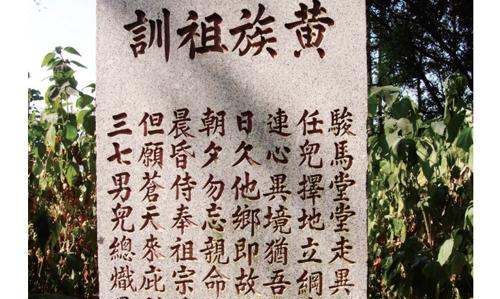 黄族祖訓
駿馬堂堂走異
任兒擇地立綱
連心異境猶吾
日久他鄉即故
朝夕勿忘親命
晨昏侍奉祖宗
但願蒼天來庇
三七男兒總熾